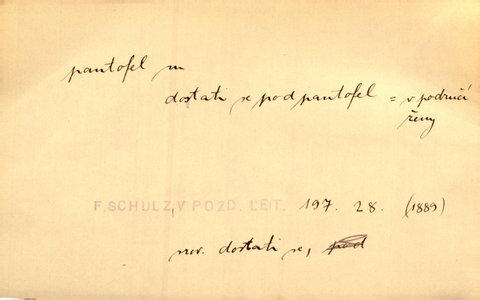 pantofel m
dostati se pod pantofel = v područí
ženy
F. SCHULZ, V POZD. LÉT. 197. 28. (1889)
srov. dostati se, pod